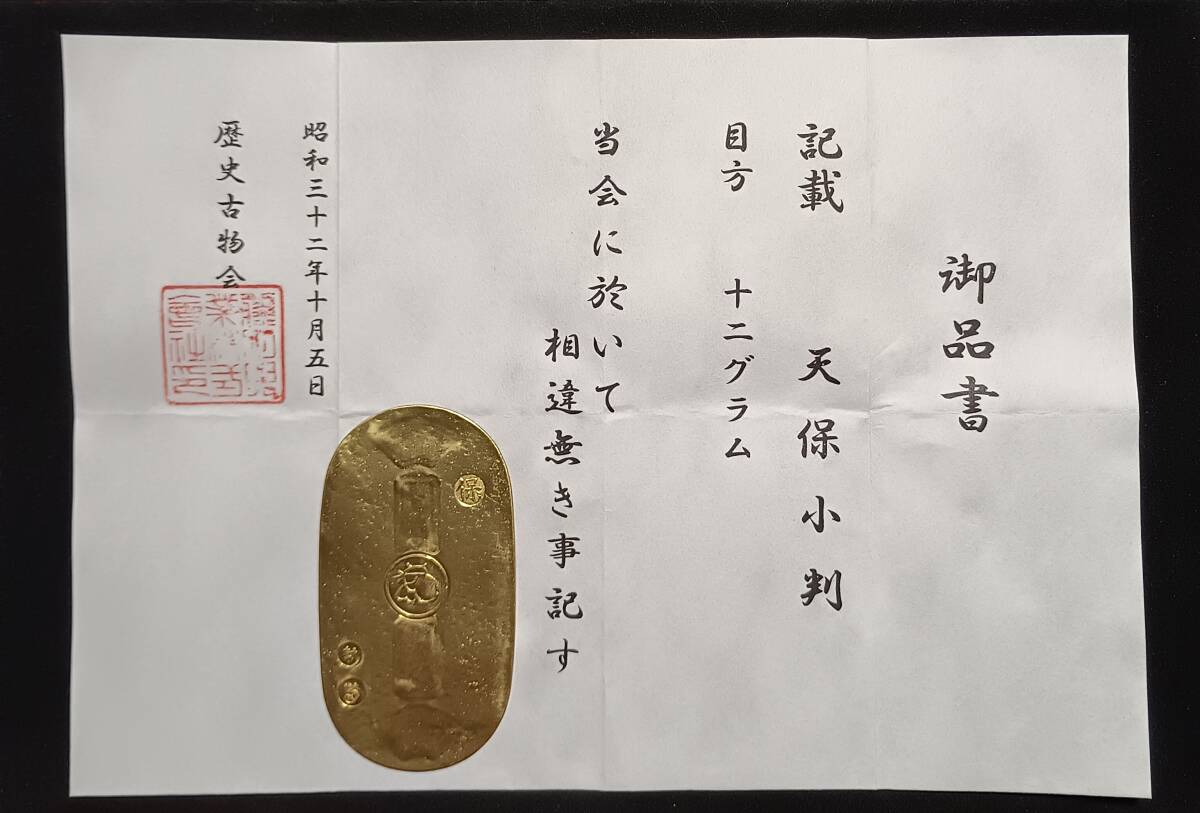 御品書
記載 天保小判
目方 十二グラム
当会に於いて
相違無き事記す
昭和三十二年十月五日
歴史古物会
保